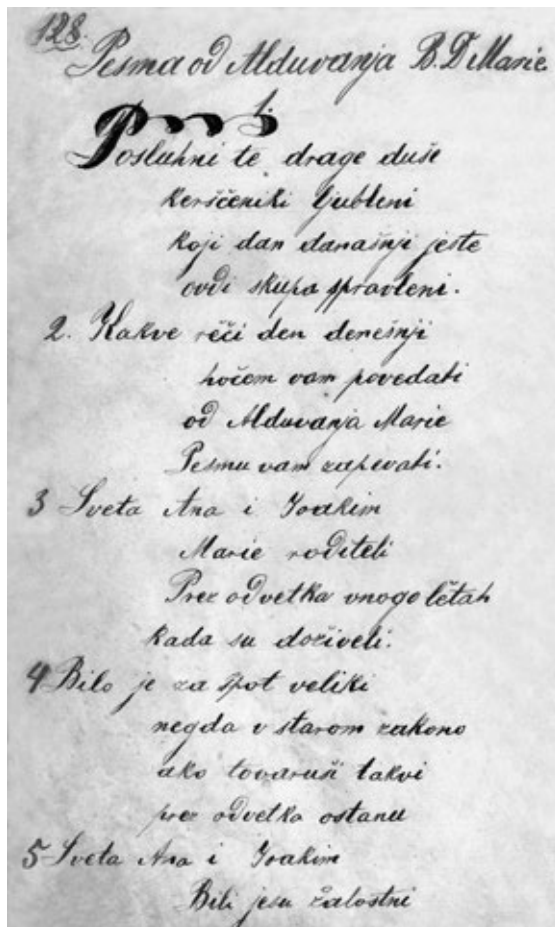 128.
Pesma od Alduvanja B. D. Marie.
1.
Posluhni te drage duše
kerščeniki ljubleni
koji dan današnji jeste
ovdi skupa spravleni.
2. Kakve rěči den denešnji
hočem vam povedati
od Alduvanja Marie
Pesmu vam zapevati.
3 Sveta Ana i Joakim
Marie roditeli
Prez odvetka vnogo lětah
kada su doživeli.
4 Bilo je za špot veliki
negda v starom zakono
ako tovaruši takvi
prez odvetka ostanu
5 Sveta Ana i Joakim
Bili jesu žalostni